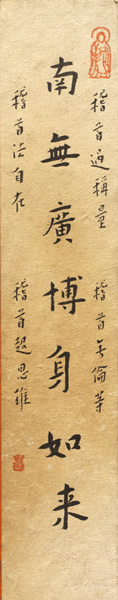 稽首過稱量 稽首無倫等
南無廣博身如来
稽首法自在 稽首超思維